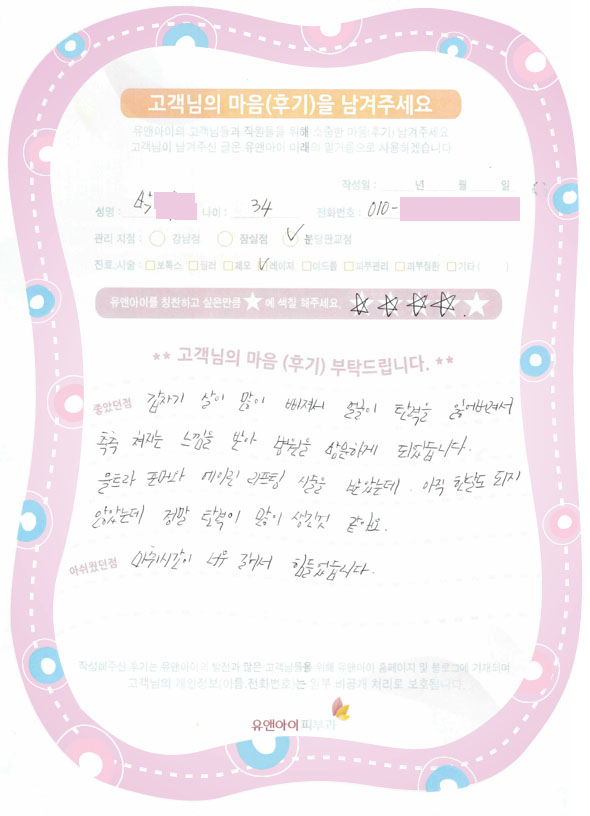 고객님의 마음(후기)을 남겨주세요
유앤아이의 고객님들과 직원들을 위해 소중한 마음(후기) 남겨주세요
고객님이 남겨주신 글은 유앤아이 미래의 밑거름으로 사용하겠습니다
작성일 : 년 월 일
성명 : 나이 : 34 전화번호 : 010-
관리 지점 : 강남점 잠실점 분당판교점
진료,시술 : 보톡스 필러 제모 레이저 여드름 피부관리 피부질환 기타 ( )
유앤아이를 칭찬하고 싶은만큼 ★ 에 색칠 해주세요.
★★ 고객님의 마음 (후기) 부탁드립니다. ★★
좋았던점 갑자기 살이 많이 빠져서 얼굴이 탄력을 잃어버려서
축축 쳐지는 느낌을 받아 병원을 방문하게 되었습니다.
울트라 포머와 에이린 리프팅 시술을 받았는데. 아직 한달도 되지
않았는데 정말 탄력이 많이 생긴것 같아요.
아쉬웠던점 마취시간이 너무 길어서 힘들었습니다.
작성해주신 후기는 유앤아이의 발전과 많은 고객님들을 위해 유앤아이 홈페이지 및 블로그에 기재되며
고객님의 개인정보(이름,전화번호)는 일부 비공개 처리로 보호됩니다.
유앤아이 피부과